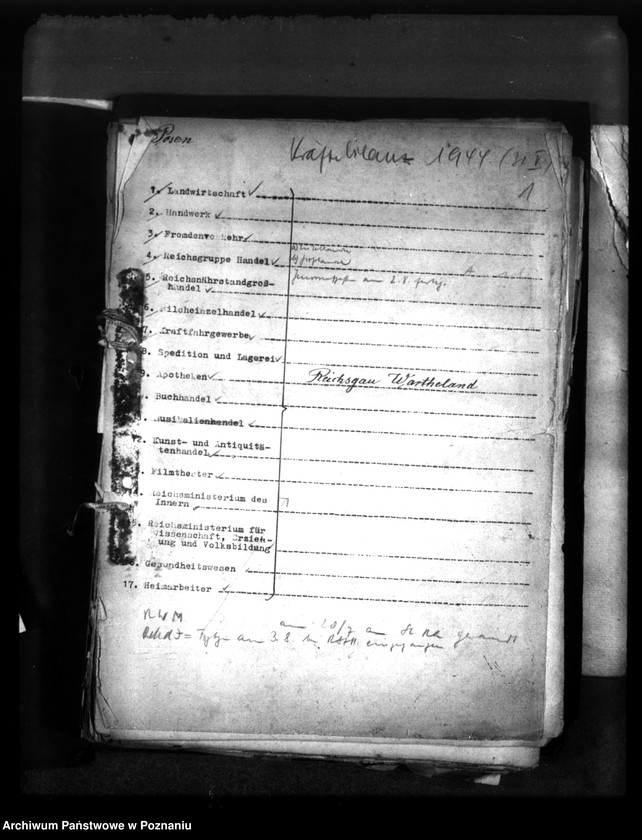 Posen
Kräftebilanz 1944 (31.V.)
1
1. Landwirtschaft
2. Handwerk
3. Fremdenverkehr
4. Reichsgruppe Handel
5. Reichsnährstandgroß-
handel
6. Milcheinzelhandel
7. Kraftfahrgewerbe
8. Spedition und Lagerei
9. Apotheken
Reichsgau Wartheland
. Buchhandel
. Musikalienhandel
2. Kunst- und Antiquitä-
tenhandel
. Filmtheater
. Reichsministerium des
Innern
5. Reichsministerium für
Wissenschaft, Erzieh-
ung und Volksbildung
. Gesundheitswesen
17. Heimarbeiter
RWM
am 28/7 an
am 3.8.
Archiwum Państwowe w Poznaniu